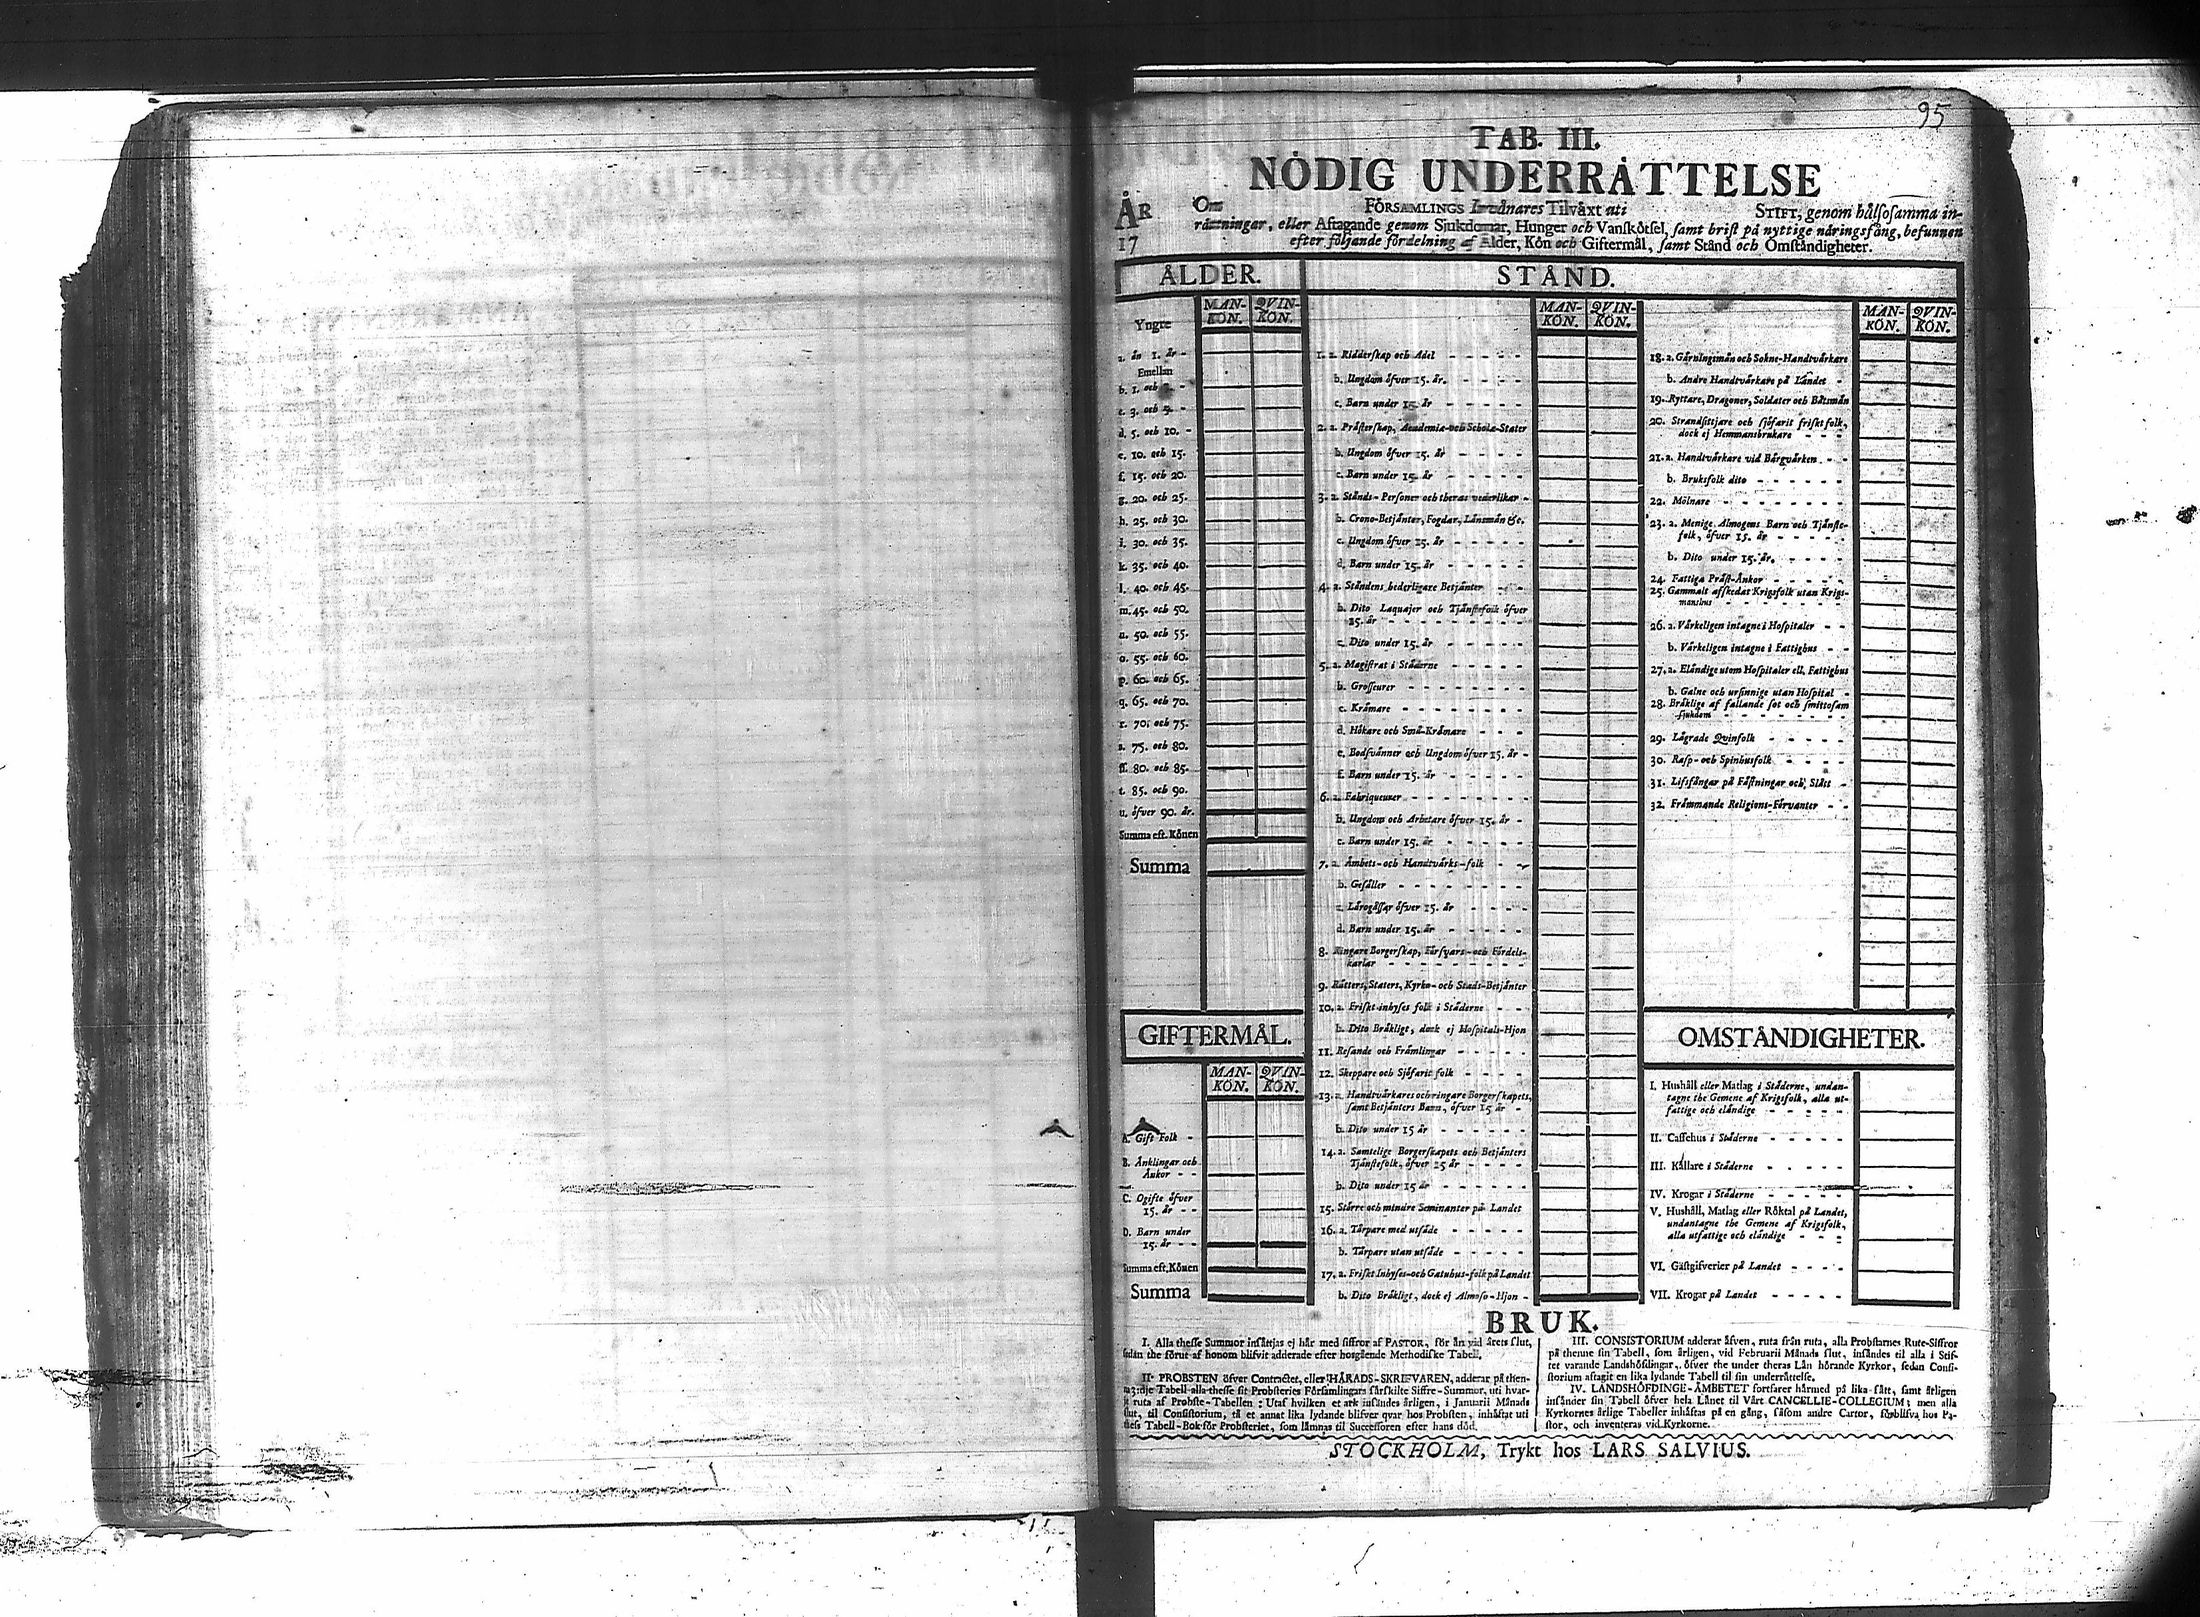 95
TAB. III.
NÖDIG UNDERRÅTTELSE
ÅR
17
Om FÖRSAMLINGS Invånares Tilvåxt uti STIFT, genom hålsosamma in-
råttningar, eller Aftagande genom Sjukdomar, Hunger och Vanskötsel, samt brist på nyttige nåringsfång, befunnen
efter följande fördelning af Ålder, Kön och Giftermål, samt Stånd och Omståndigheter.
ÅLDER.
MAN-KÖN. QVIN-KÖN.
Yngre
a. ån 1. år -
Emellan
b. 1. och 3. -
c. 3. och 5. -
d. 5. och 10. -
e. 10. och 15.
f. 15. och 20.
g. 20. och 25.
h. 25. och 30.
i. 30. och 35.
k. 35. och 40.
l. 40. och 45.
m. 45. och 50.
n. 50. och 55.
o. 55. och 60.
p. 60. och 65.
q. 65. och 70.
r. 70. och 75.
s. 75. och 80.
ff. 80. och 85.
t. 85. och 90.
u. öfver 90. år.
Summa eft. Könen
Summa
GIFTERMÅL.
MAN-KÖN. QVIN-KÖN.
A. Gift Folk -
B. Ånklingar och
Ånkor - -
C. Ogifte öfver
15. år - -
D. Barn under
15. år - -
Summa eft. Könen
Summa
STÅND.
MAN-KÖN. QVIN-KÖN.
1. a. Ridderskap och Adel - - - - -
b. Ungdom öfver 15. år. - - - -
c. Barn under 15. år - - - - -
2. a. Pråsterskap, Academiæ-och Scholæ-Stater
b. Ungdom öfver 15. år - - - -
c. Barn under 15. år - - - -
3. a. Stånds-Personer och theras vederlikar -
b. Crono-Betjånter, Fogdar, Lånsmån &c.
c. Ungdom öfver 15. år - - - -
d. Barn under 15. år - - - -
4. a. Ståndens hederligare Betjånter - -
b. Dito Laquajer och Tjånstefolk öfver
15. år - - - - - - - -
c. Dito under 15. år - - - - -
5. a. Magistrat i Ståderne - - - - -
b. Grosseurer - - - - - - -
c. Kråmare - - - - - - - -
d. Hökare och Små-Kråmare - - -
e. Bodsvånner och Ungdom öfver 15. år -
f. Barn under 15. år - - - - -
6. a. Fabriqueurer - - - - - - -
b. Ungdom och Arbetare öfver 15. år -
c. Barn under 15. år - - - - -
7. a. Åmbets-och Handtvårks-folk - -
b. Gesåller - - - - - - -
c. Lårogåssar öfver 15. år - - - -
d. Barn under 15. år - - - - -
8. Ringare Borgerskap, Försvars-och Fördels-
karlar - - - - - - - -
9. Råtters, Staters, Kyrko-och Stads-Betjånter
10. a. Friskt inhyses folk i Ståderne - -
b. Dito Bråkligt, dock ej Hospitals-Hjon
11. Resande och Fråmlingar - - - - -
12. Skeppare och Sjöfarit folk - - - -
13. a. Handtvårkares och ringare Borgerskapets,
samt Betjånters Barn, öfver 15 år -
b. Dito under 15 år - - - - - -
14. a. Samtelige Borgerskapets och Betjånters
Tjånstefolk, öfver 15 år - - - -
b. Dito under 15 år - - - - -
15. Större och mindre Seminanter på Landet
16. a. Torpare med utsåde - - - - -
b. Torpare utan utsåde - - - - -
17. a. Friskt Inhyses-och Gatuhus-folk på Landet
b. Dito Bråkligt, dock ej Almoso-Hjon -
MAN-KÖN. QVIN-KÖN.
18. a. Gårningsmån och Sokne-Handtvårkare
b. Andre Handtvårkare på Landet -
19. Ryttare, Dragoner, Soldater och Båtsmån
20. Strandsittjare och sjöfarit friskt folk,
dock ej Hemmansbrukare - - -
21. a. Handtvårkare vid Bårgvårken - -
b. Bruksfolk dito - - - - -
22. Mölnare - - - - - - - -
23. a. Menige Almogens Barn och Tjånste-
folk, öfver 15. år - - - - -
b. Dito under 15. år. - - - -
24. Fattiga Pråst-Ånkor - - - - -
25. Gammalt afskedat Krigsfolk utan Krigs-
manshus - - - - - - -
26. a. Vårkeligen intagne i Hospitaler - -
b. Vårkeligen intagne i Fattighus - -
27. a. Elåndige utom Hospitaler ell. Fattighus
b. Galne och ursinnige utan Hospital -
28. Bråklige af fallande sot och smittosam
sjukdom - - - - - - -
29. Lågrade Qvinfolk - - - - -
30. Rasp-och Spinhusfolk - - - - -
31. Lifsfångar på Fåstningar och Slått -
32. Fråmmande Religions-Förvanter - -
OMSTÅNDIGHETER.
I. Hushåll eller Matlag i Ståderne, undan-
tagne the Gemene af Krigsfolk, alla ut-
fattige och elåndige - - - - -
II. Caffehus i Ståderne - - - - -
III. Kållare i Ståderne - - - - -
IV. Krogar i Ståderne - - - - -
V. Hushåll, Matlag eller Röktal på Landet,
undantagne the Gemene af Krigsfolk,
alla utfattige och elåndige - - -
VI. Gåstgifverier på Landet - - - -
VII. Krogar på Landet - - - - -
BRUK.
I. Alla thesse Summor insåttjas ej hår med siffror af PASTOR, för ån vid årets slut,
sedan the förut af honom blifvit adderade efter hosgående Methodiske Tabell.
II. PROBSTEN öfver Contractet, eller HÅRADS-SKRIFVAREN, adderar på then-
na 3:dje Tabell alla thesse sit Probsteries Församlingars sårskilte Siffre-Summor, uti hvar-
t ruta af Probste-Tabellen: Utaf hvilken et ark insåndes årligen, i Januarii Månads
slut, til Consistorium, tå et annat lika lydande blifver qvar hos Probsten, inhåftat uti
thess Tabell-Bok för Probsteriet, som låmnas til Successoren efter hans död.
III. CONSISTORIUM adderar åfven, ruta från ruta, alla Probstarnes Rute-Siffror
på thenne sin Tabell, som årligen, vid Februarii Månads slut, insåndes til alla i Stif-
tet varande Landshöfdingar, öfver the under theras Lån hörande Kyrkor, sedan Consi-
storium aftagit en lika lydande Tabell til sin underråttelse.
IV. LANDSHÖFDINGE-ÅMBETET fortfarer hårmed på lika sått, samt åtligen
insånder sin Tabell öfver hela Lånet til Vårt CANCELLIE-COLLEGIUM; men alla
Kyrkornes årlige Tabeller inhåftas på en gång, såsom andre Cartor, förblifva hos Pa-
stor, och inventeras vid Kyrkorne.
STOCKHOLM, Trykt hos LARS SALVIUS.